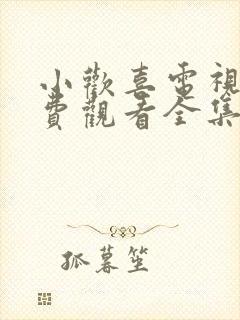 小歡喜電視
費觀看全集
孤暮笙